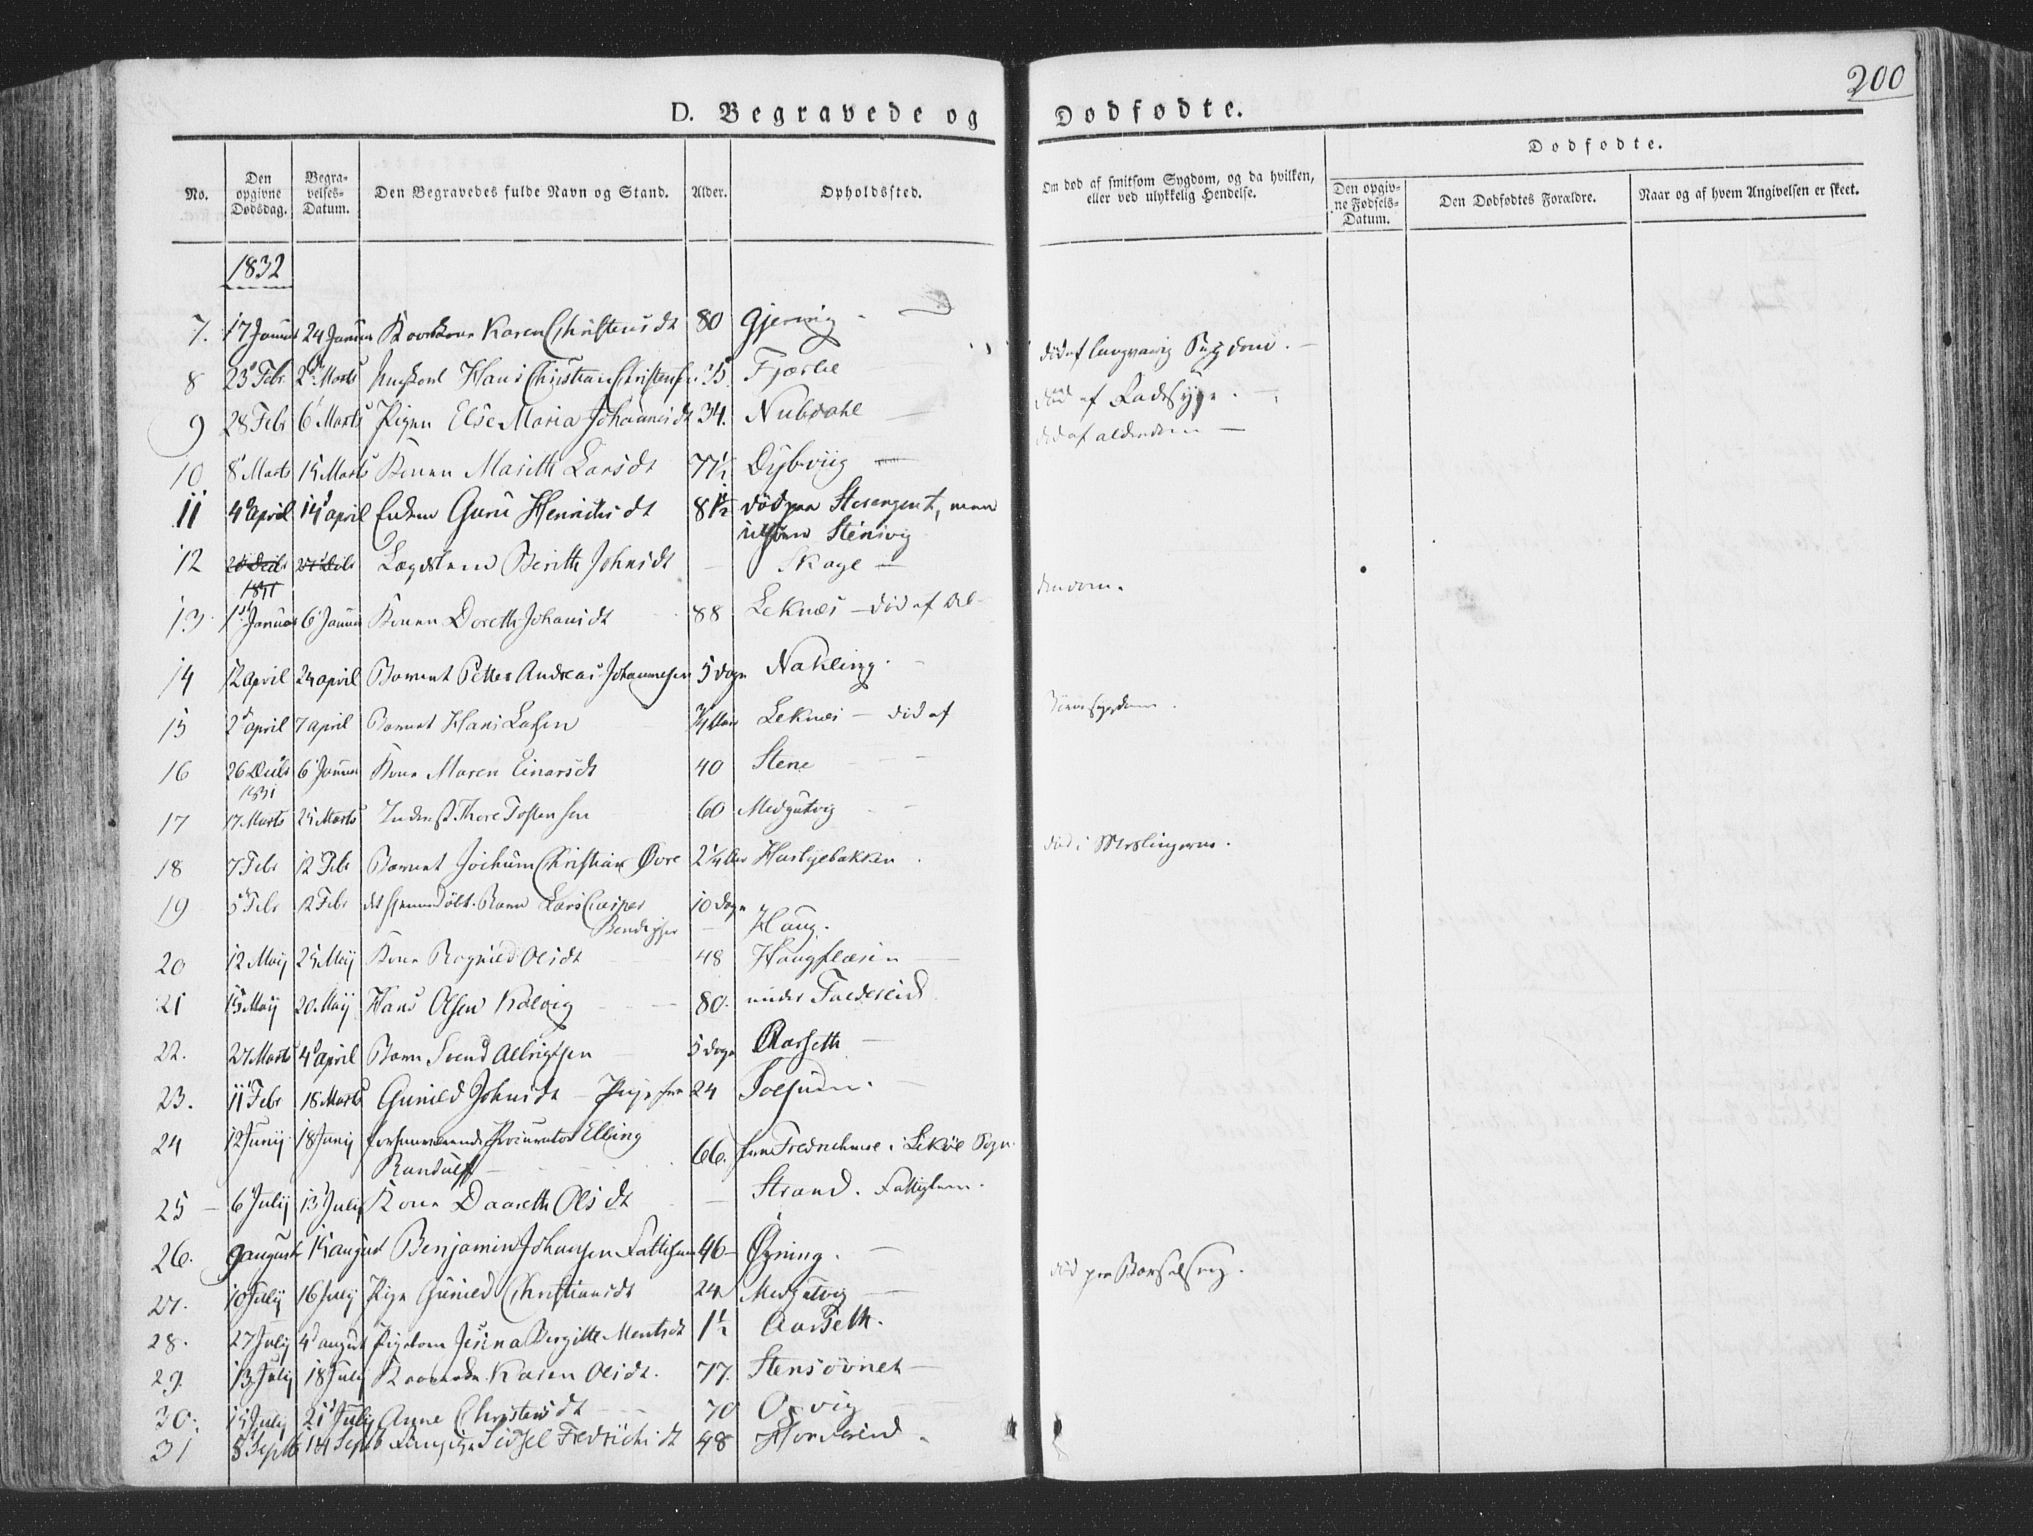 200
D. Begravede og Dødfødte.
No.
Den opgivne Dødsdag.
Begravelses-Datum.
Den Begravedes fulde Navn og Stand.
Alder.
Opholdssted.
Om død af smitsom Sygdom, og da hvilken, eller ved ulykkelig Hendelse.
Dødfødte.
Den opgivne Fødsels-Datum.
Den Dødfødtes Forældre.
Naar og af hvem Angivelsen er skeet.
1832
7. 17 Januar 24 Januar Karen Christensdt 80 Gjerung
8 23 Febr 2 Marts Hans Christian Christensen 35 Fjærlie død af langvarig Sygdom.
9 28 Febr 6 Marts Pigen Else Maria Johannesdt 34. Nubdahl død af Radesyge.
10 8 Marts 15 Marts Konen Marith Larsdt 77½ Dybviig død af alderdom
11 4 april 14 april Enken Guru Henrichsdt 8½ død paa men
Stensvig
12 Lægdslem Berith Johnsdt Skage
1831
13. 1 Januar 6 Januar Konen Doreth Johansdt 88 Leknæs død af Al-
derdom.
14 12 april 24 april Barnet Petter Andreas Johannesen 5 dage Nakling
15 2 april 7 april Barnet Hans Larsen Leknæs død af
Børnesygdom.
16 26 Decbr 6 Januar Kone Maren Einarsdt 40 Stene
1831
17 17 Marts 25 Marts Inderst Thore Tostensen 60 Medgutvig
18 7 Febr 12 Febr Barnet Jochum Christian Øvre 2¼ Aar Harlyebakken død i Meslingerne.
19 5 Febr 12 Febr det hjemmedøbt. Barn Lars Casper 10 dage
Bendixsen Haug.
20 12 Maij 25 Maij Kone Ragnild Olsdt 48 Haugflæsen
21 15 Maij 20 Maij Hans Olsen Kalvig 80. under Foldereid
22. 27 Marts 4 april Barn Svend Albrigtsen 5 dage Aarseth
23. 11 Febr 18 Marts Gunild Johnsdt Pige 24
24 12 Junij 18 Junij forhenværende Procurator Elling
Randulff 66. fra i Lekøe Sogn.
25 6 Julij 13 Julij Kone Daareth Olsdt Strand. Fattiglem.
26. 9 august 15 august Benjamin Johansen 46 Øyning.
27. 10 Julij 16 Julij Pige Gunild Christiansdt 24 Medgutvig død paa Barselseng.
28. 27 Julij 4 august Pigebarn Jesina Bergitte Mentsdt 1½ Aarseth.
29. 13 Julij 18 Julij Karen Olsdt. 77. Stensøvnet
30. 15 Julij 21 Julij Anne Christensdt 70
31 8 Septb 14 Septb Sidsel Fredrichsdt 48